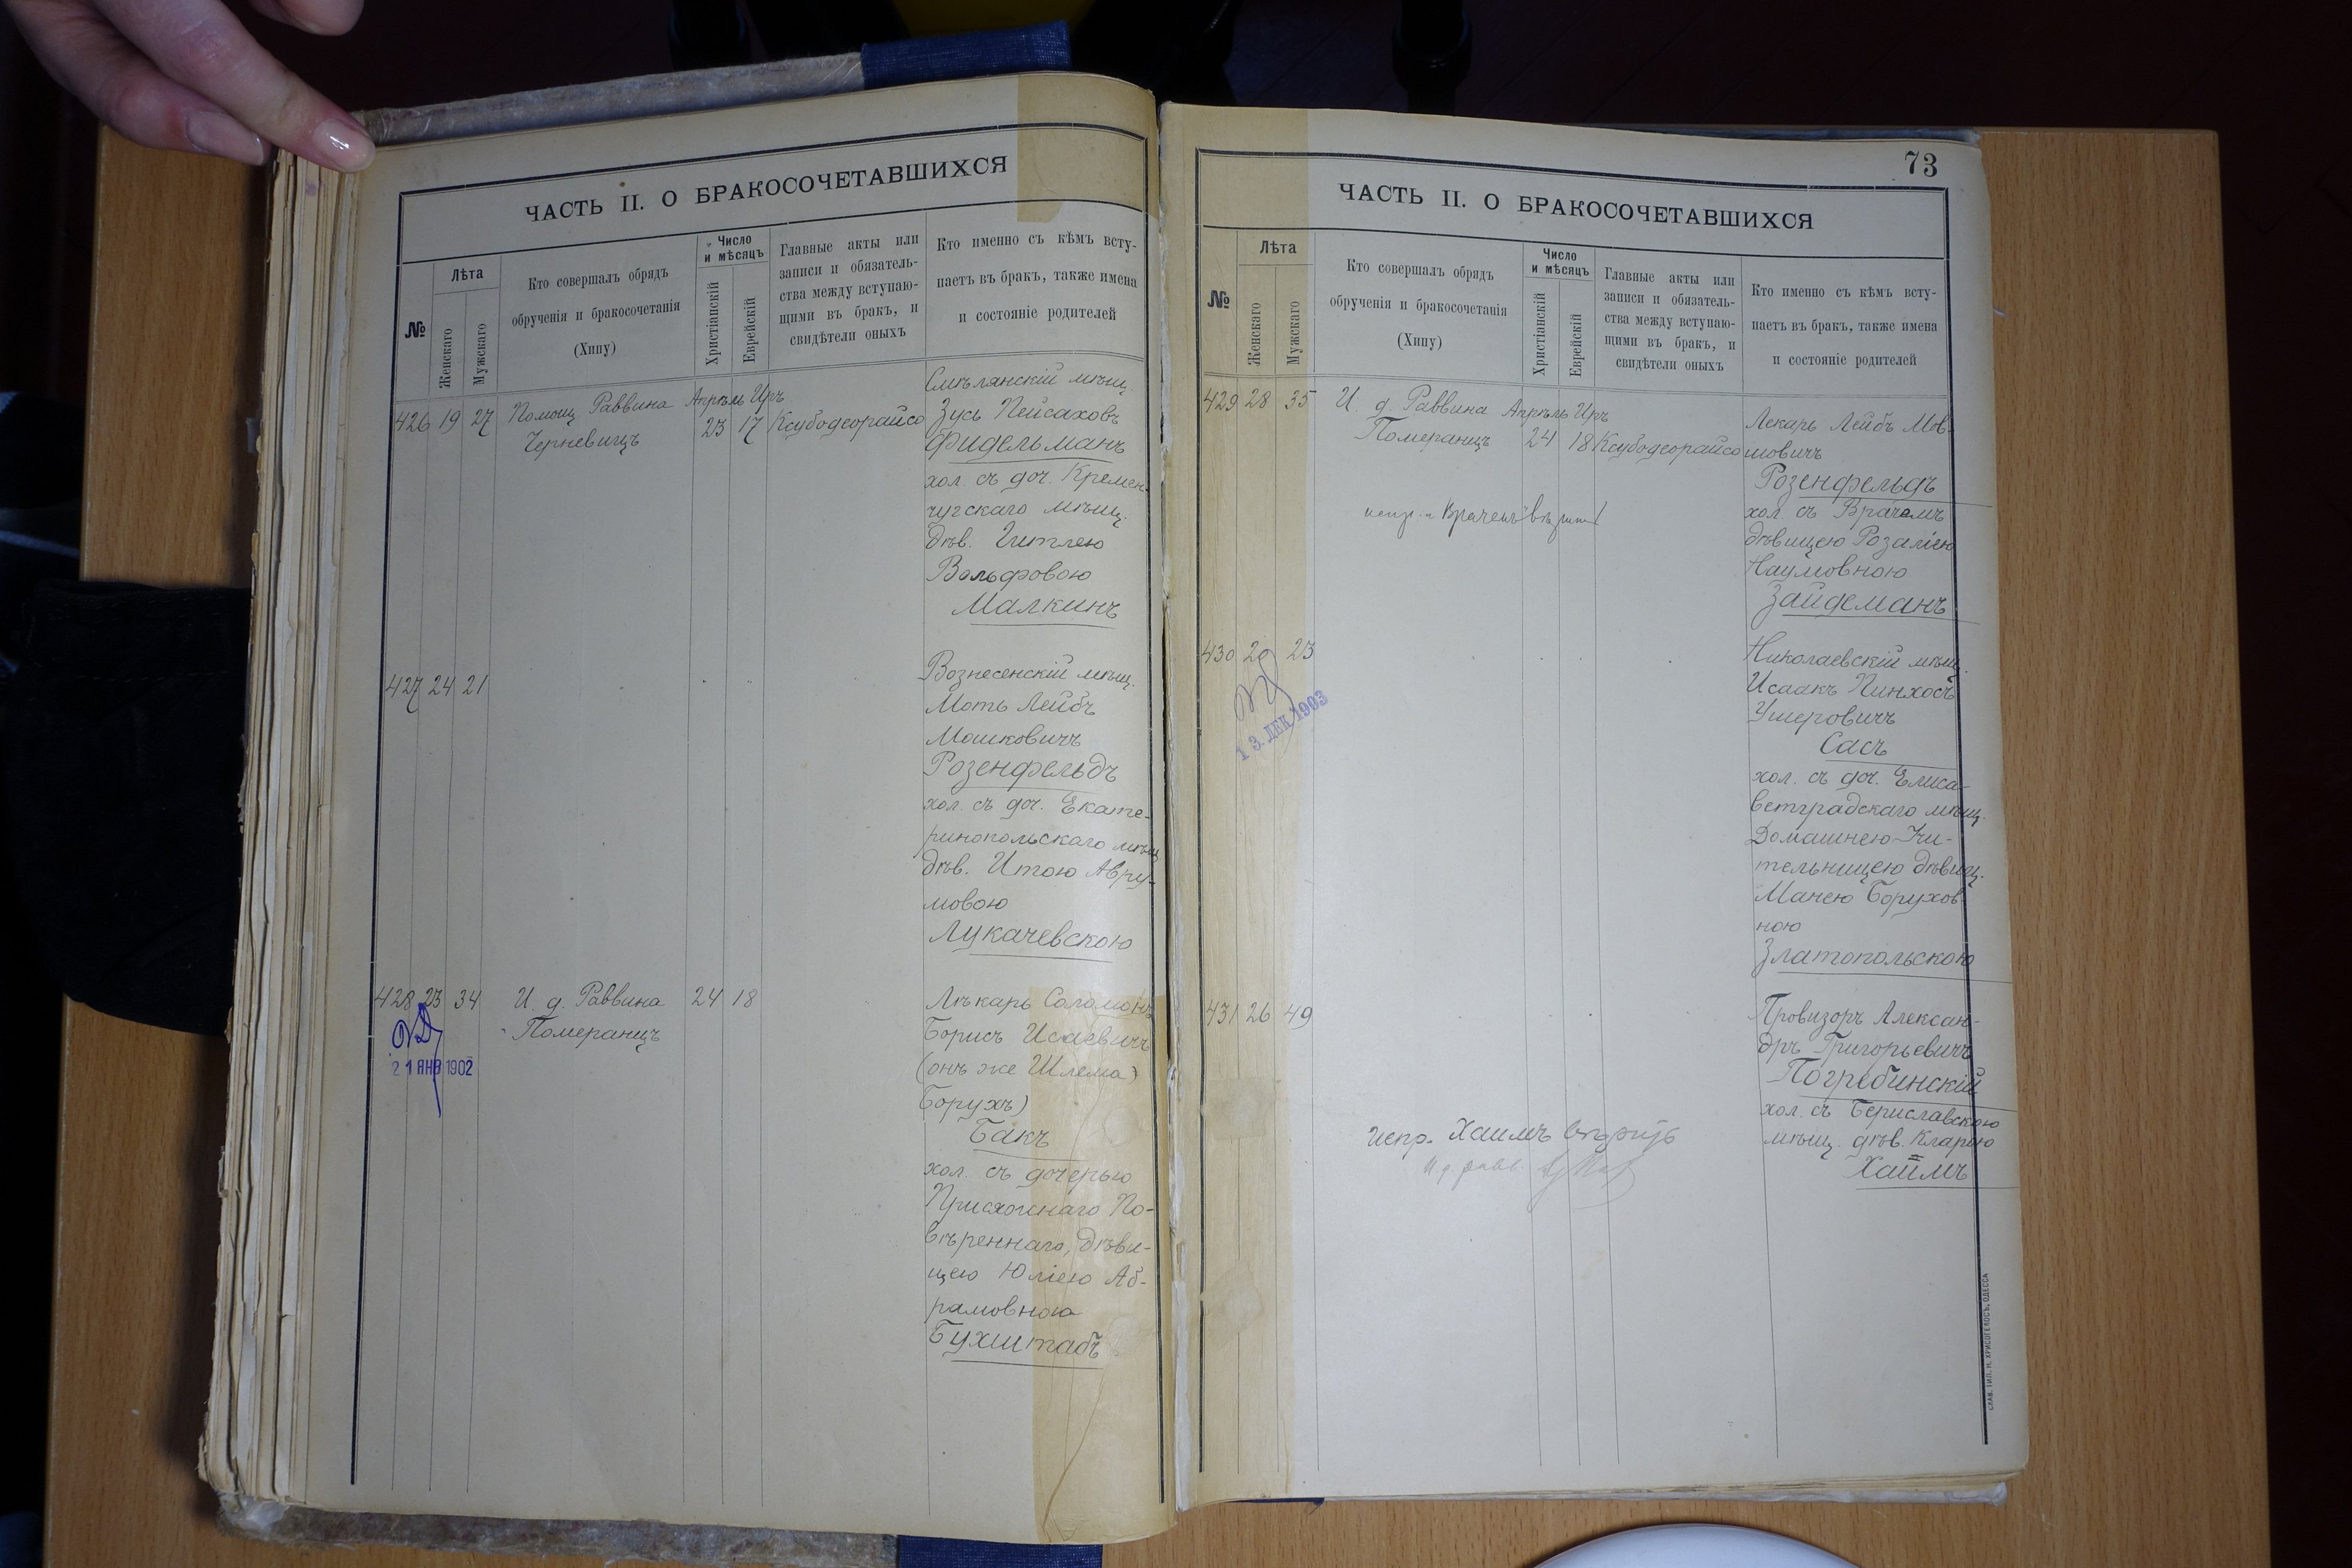 ЧАСТЬ II. О БРАКОСОЧЕТАВШИХСЯ
№
Лѣта
Женскаго
Мужскаго
Кто совершалъ обрядъ
обрученія и бракосочетанія
(Хипу)
Число
и мѣсяцъ
Христіанскій
Еврейскій
Главные акты или
записи и обязатель-
ства между вступаю-
щими въ бракъ, и
свидѣтели оныхъ
Кто именно съ кѣмъ всту-
паетъ въ бракъ, также имена
и состояніе родителей
426 19 27
Помощ. Раввина
Черневицъ
Апрѣль Иръ
23 17
Ксубодеорайсо
Смѣлянскій мѣщ.
Зусь Пейсаховъ
Фидельманъ
хол. съ доч. Кремен-
чугскаго мѣщ.
дѣв. Гитлею
Вольфовою
Малкинъ
427 24 21
Вознесенскій мѣщ.
Моть Лейбъ
Мошковичъ
Розенфельдъ
хол. съ доч. Екате-
ринопольскаго мѣщ
дѣв. Итою Авру-
мовою
Лукачевскою
428 23 34
21 ЯНВ 1902
И. д. Раввина
Померанцъ
24 18
Лѣкарь Соломонъ
Борисъ Исаевичъ
(онъ же Шлема)
Борухъ)
Бакъ
хол. съ дочерью
Присяжнаго По-
вѣреннаго, дѣви-
цею Юліею Аб-
рамовною
Бухштабъ
73
ЧАСТЬ II. О БРАКОСОЧЕТАВШИХСЯ
№
Лѣта
Женскаго
Мужскаго
Кто совершалъ обрядъ
обрученія и бракосочетанія
(Хипу)
Число
и мѣсяцъ
Христіанскій
Еврейскій
Главные акты или
записи и обязатель-
ства между вступаю-
щими въ бракъ, и
свидѣтели оныхъ
Кто именно съ кѣмъ всту-
паетъ въ бракъ, также имена
и состояніе родителей
429 28 35
И. д. Раввина
Померанцъ
Апрѣль Иръ
24 18
Ксубодеорайсо
Лекарь Лейбъ Мов-
мовичъ
Розенфельдъ
хол. съ Врачемъ
дѣвицею Розаліею
Наумовною
Зайдеманъ
430 20 23
13. ДЕК 1903
Николаевскій мѣщ.
Исаакъ Пинхосъ
Ушеровичъ
Сасъ
хол. съ доч. Елиса-
ветградскаго мѣщ.
Домашнею Учи-
тельницею дѣвиц.
Манею Борухов-
ною
Златопольскою
431 26 49
Провизоръ Алексан-
дръ Григорьевичъ
Погребинскій
хол. съ Бериславскою
мѣщ. дѣв. Кларою
Хаимъ
испр. Хаимъ вѣрить
И. д. равв.
СЛАВ. ТИП. Н. ХРИСОГЕЛОСЪ, ОДЕССА